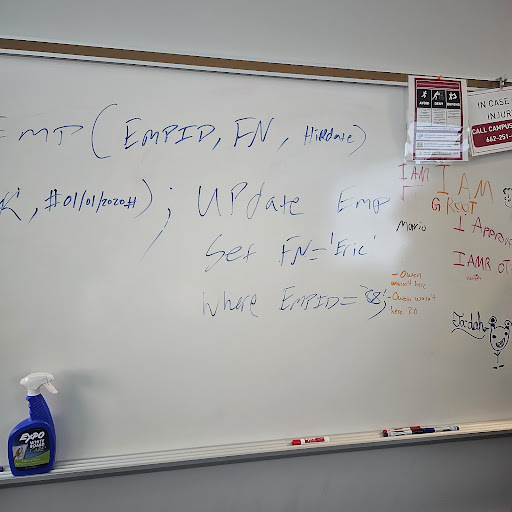 Emp (EMPID, FN, HireDate)
', #01/01/2020#);
Update Emp
Set FN='Eric'
Where EMPID=
AVOID DENY DEFEND
IN CASE
INJUR
CALL CAMPUS
662-251-
I AM
I AM
GROOT
Mario
I Approv
I AMR OT
- Owen
wasn't here
- Owen wasn't
here 2.0
Jordan
EXPO
WHITE
BOARD
CARE